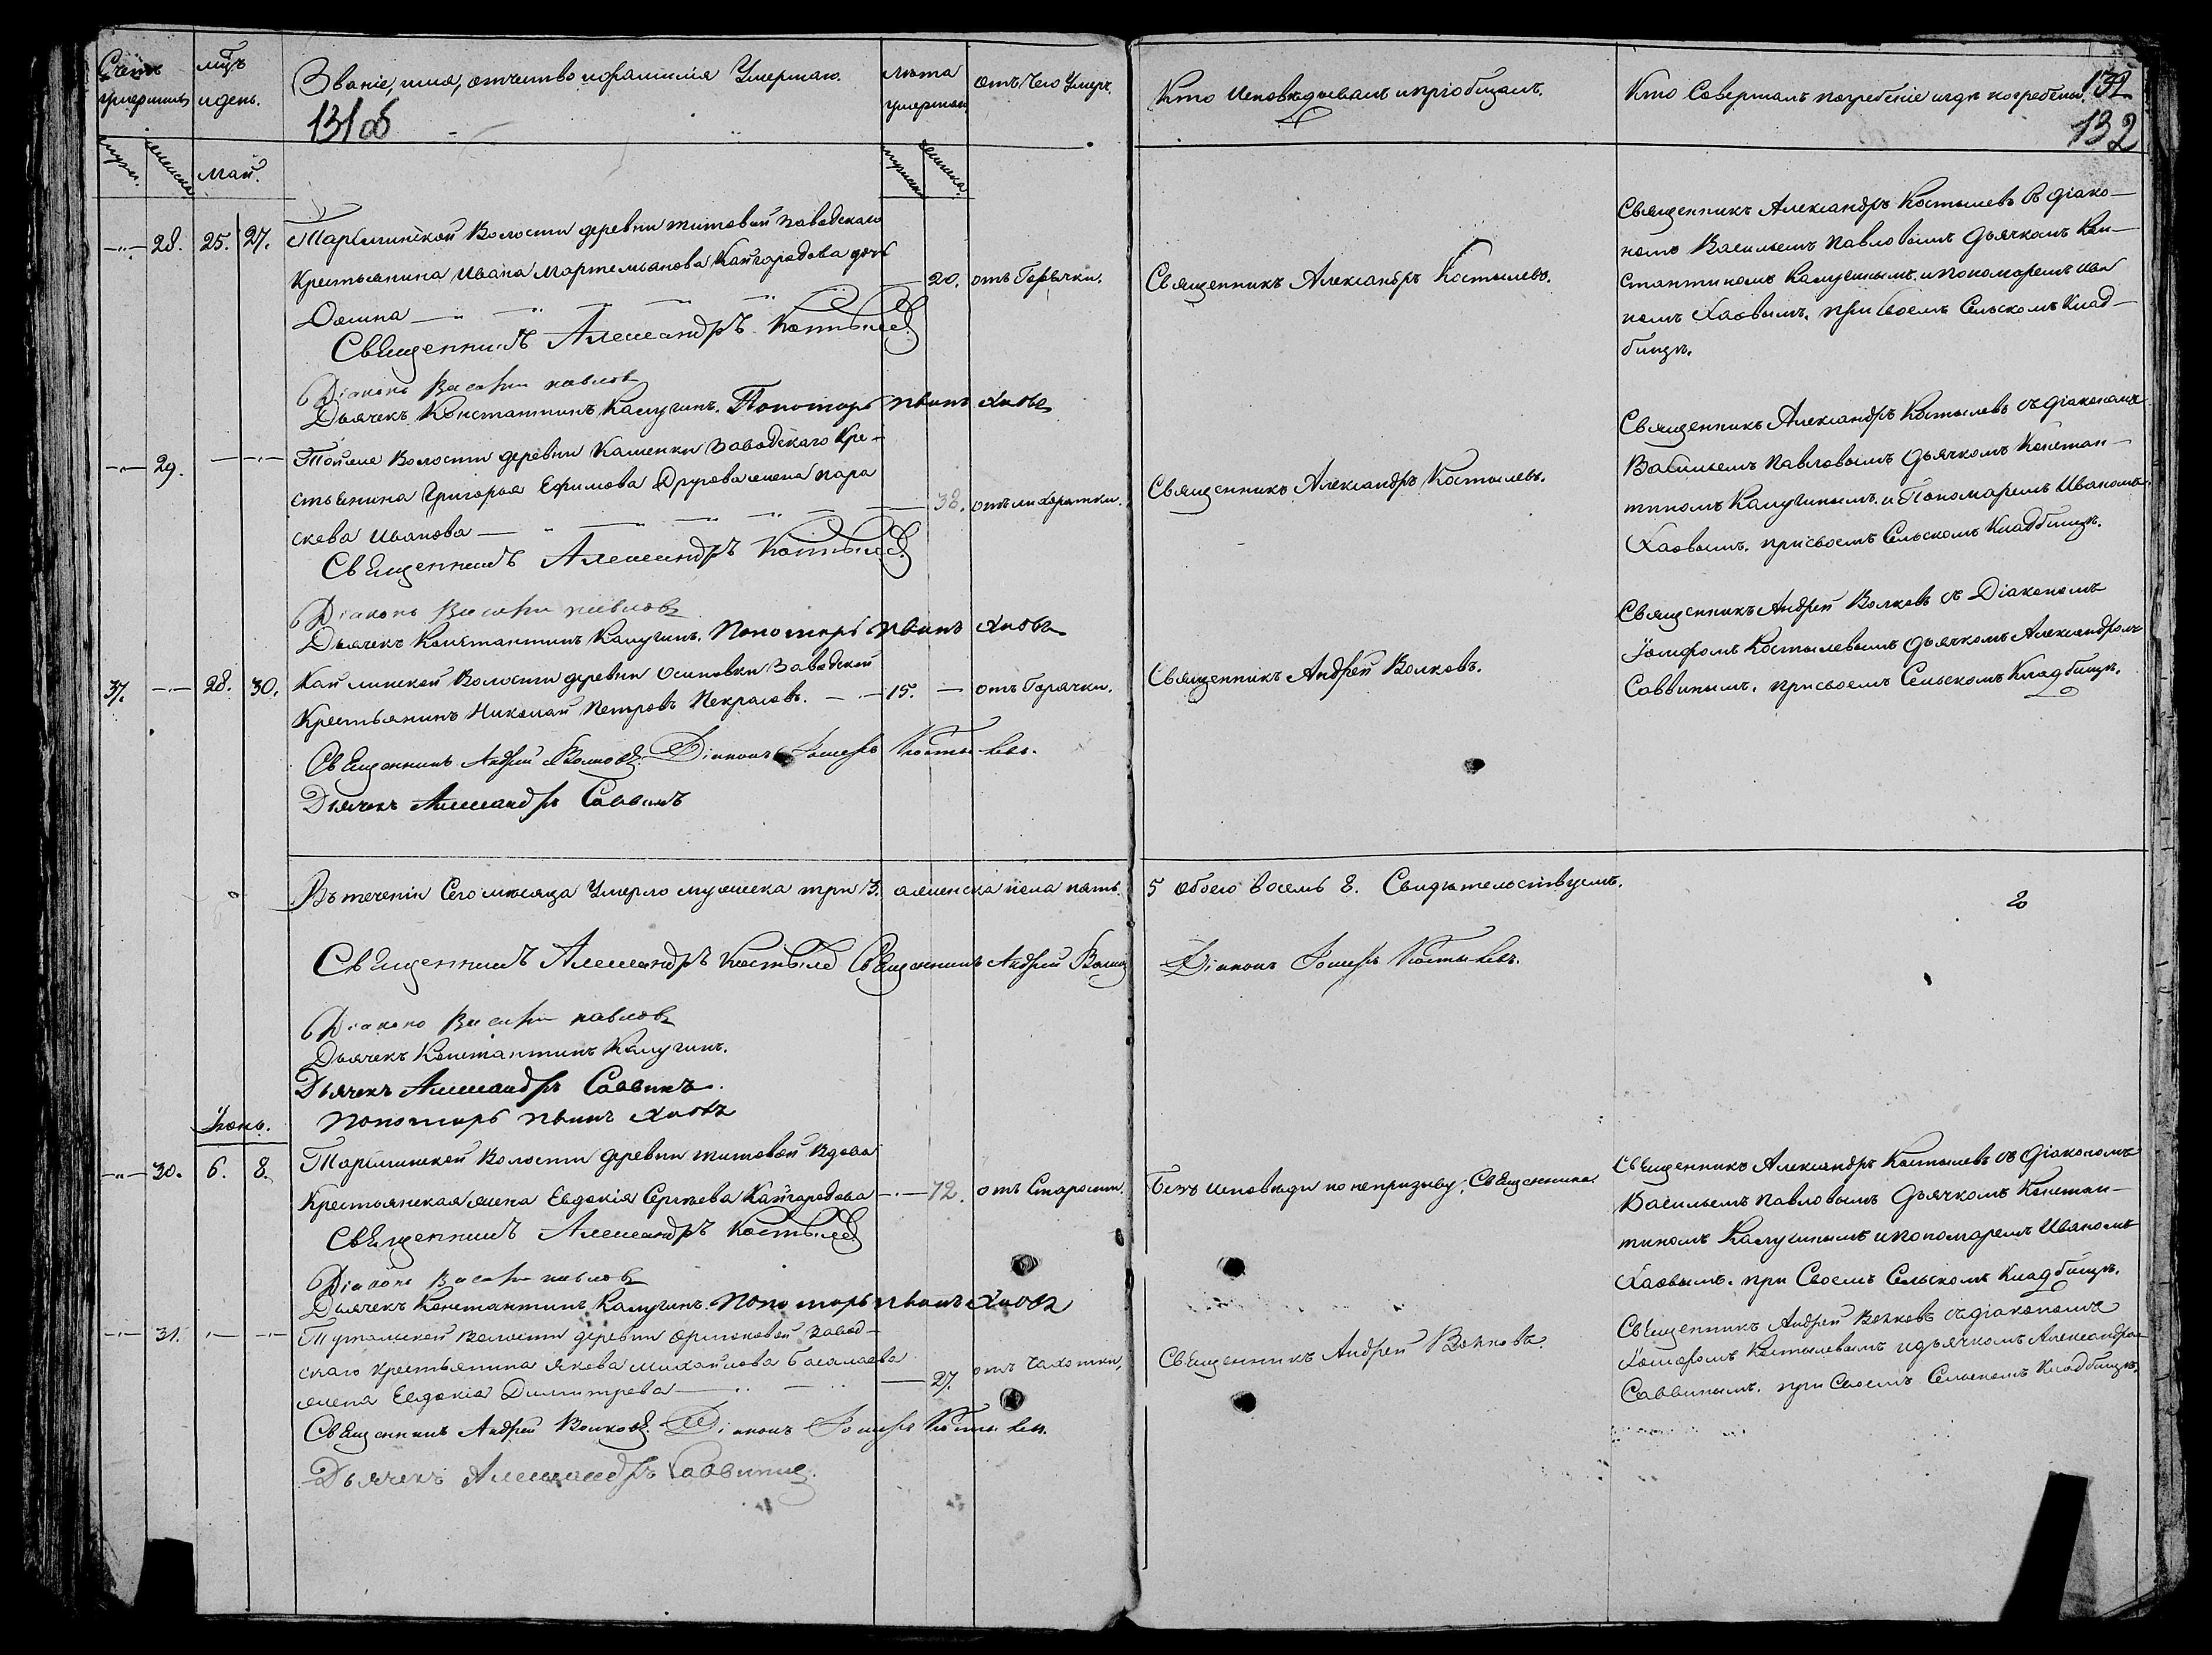 Счетъ умершихъ
мцъ и день.
Званіе, имя, отчество и фамилія Умершаго.
131об
Лета умершаго
отъ Чего Умеръ.
муж. женска
Май.
мужска женска.
28. 25. 27.
Тарсминской Волости деревни Титовой Заводскаго
Крестьянина Ивана Мартемьянова Кайгородова дочь
Домна
20. отъ Горячки.
Священникъ Александръ Костылевъ
Діаконъ Василій Павловъ
Дьячекъ Константинъ Калугинъ. Пономарь Иванъ Хаовъ
29.
Тойже Волости деревни Каменки Заводскаго Кре-
стьянина Григорья Ефимова Другова жена Пара
скева Иванова
38. отъ лихоратки.
Священникъ Александръ Костылевъ
Діаконъ Василій Павловъ
Дьячекъ Константинъ Калугинъ, Пономарь Иванъ Хаовъ
37. 28. 30.
Кайлинской Волости деревни Осиновки Заводской
Крестьянинъ Николай Петровъ Некрасовъ. 15. отъ Горячки.
Священникъ Андрей Волковъ. Діаконъ Іосифъ Костылевъ.
Дьячекъ Александръ Саввинъ
Въ теченіи Сего месяца Умерло мужска три 3. а женска пола пять
Священникъ Александръ Костылевъ Священникъ Андрей Волковъ
Діаконъ Василій Павловъ
Дьячекъ Константинъ Калугинъ.
Дьячекъ Александръ Саввинъ.
Пономарь Иванъ Хаовъ
Іюнь.
30. 6. 8.
Тарсминской Волости деревни Титовой Вдова
Крестьянская жена Евдокія Сергеева Кайгородова 72. отъ Старости
Священникъ Александръ Костылевъ
Діаконъ Василій Павловъ
Дьячекъ Константинъ Калугинъ. Пономарь Иванъ Хаовъ
31.
Тутальской Волости деревни Завод-
скаго Крестьянина Якова Михайлова
жена Евдокія Димитрева
27. отъ Чахотки,
Священникъ Андрей Волковъ. Діаконъ Іосифъ Костылевъ.
Дьячекъ Александръ Саввинъ.
Кто Исповѣдывалъ и пріобщалъ.
Кто Совершалъ погребеніе и гдѣ погребены.
132
132
Священникъ Александръ Костылевъ.
Священникъ Александръ Костылевъ съ діако-
номъ Васильемъ Павловымъ Дьячкомъ Кон-
стантиномъ Калугинымъ. и пономаремъ Ива
номъ Хаовымъ. при своемъ Сельскомъ Клад-
бищѣ.
Священникъ Александръ Костылевъ.
Священникъ Александръ Костылевъ съ діакономъ
Васильемъ Павловымъ Дьячкомъ Констан-
тиномъ Калугинымъ. и Пономаремъ Иваномъ
Хаовымъ. при своемъ Сельскомъ Кладбищѣ.
Священникъ Андрей Волковъ.
Священникъ Андрей Волковъ съ Діакономъ
Іосифомъ Костылевымъ дьячкомъ Александромъ
Саввинымъ. при своемъ Сельскомъ Кладбищѣ.
5 обоего восемь 8. Свидѣтельствуемъ.
Діаконъ Іосифъ Костылевъ.
Безъ исповѣди по непризыву. Священника
Священникъ Александръ Костылевъ съ діакономъ
Васильемъ Павловымъ Дьячкомъ Констан-
тиномъ Калугинымъ и пономаремъ Иваномъ
Хаовымъ. при Своемъ Сельскомъ Кладбищѣ.
Священникъ Андрей Волковъ.
Священникъ Андрей Волковъ съ діакономъ
Іосифомъ Костылевымъ и дьячкомъ Александромъ
Саввинымъ. при Своемъ Сельскомъ Кладбищѣ.